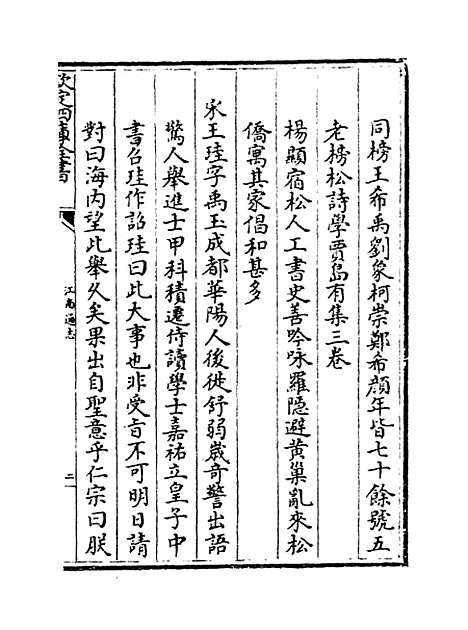 同榜王希禹劉象柯崇鄭希顔年皆七十餘號五
老榜松詩學賈島有集三卷
楊顯宿松人工書史善吟咏羅隠避黄巢亂來松
僑寓其家倡和甚多
宋王珪字禹玉成都華陽人後徙舒弱嵗奇警出語
驚人舉進士甲科積遷侍讀學士嘉祐立皇子中
書召珪作詔珪曰此大事也非受㫖不可明日請
對曰海内望此舉久矣果出自聖意乎仁宗曰朕
欽定四庫全書
江南通志
二